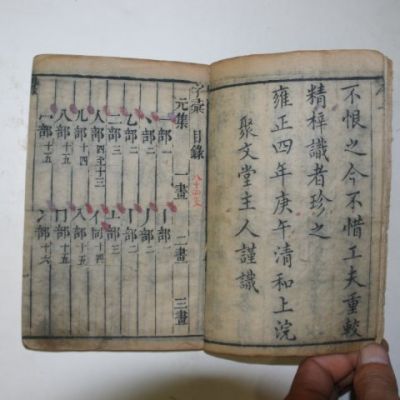 不恨之今不惜工夫重較
精梓識者珍之
雍正四年庚午清和上浣
聚文堂主人謹識
字彙 目錄
元集 一畫 二畫 三畫
一部一 丨部一
丶部一 丿部一
乙部二 亅部二
二部三 亠部三
人部四至十三 亻同四
儿部十四 入部十五
八部十五 冂部十五
冖部十五 冫部十六